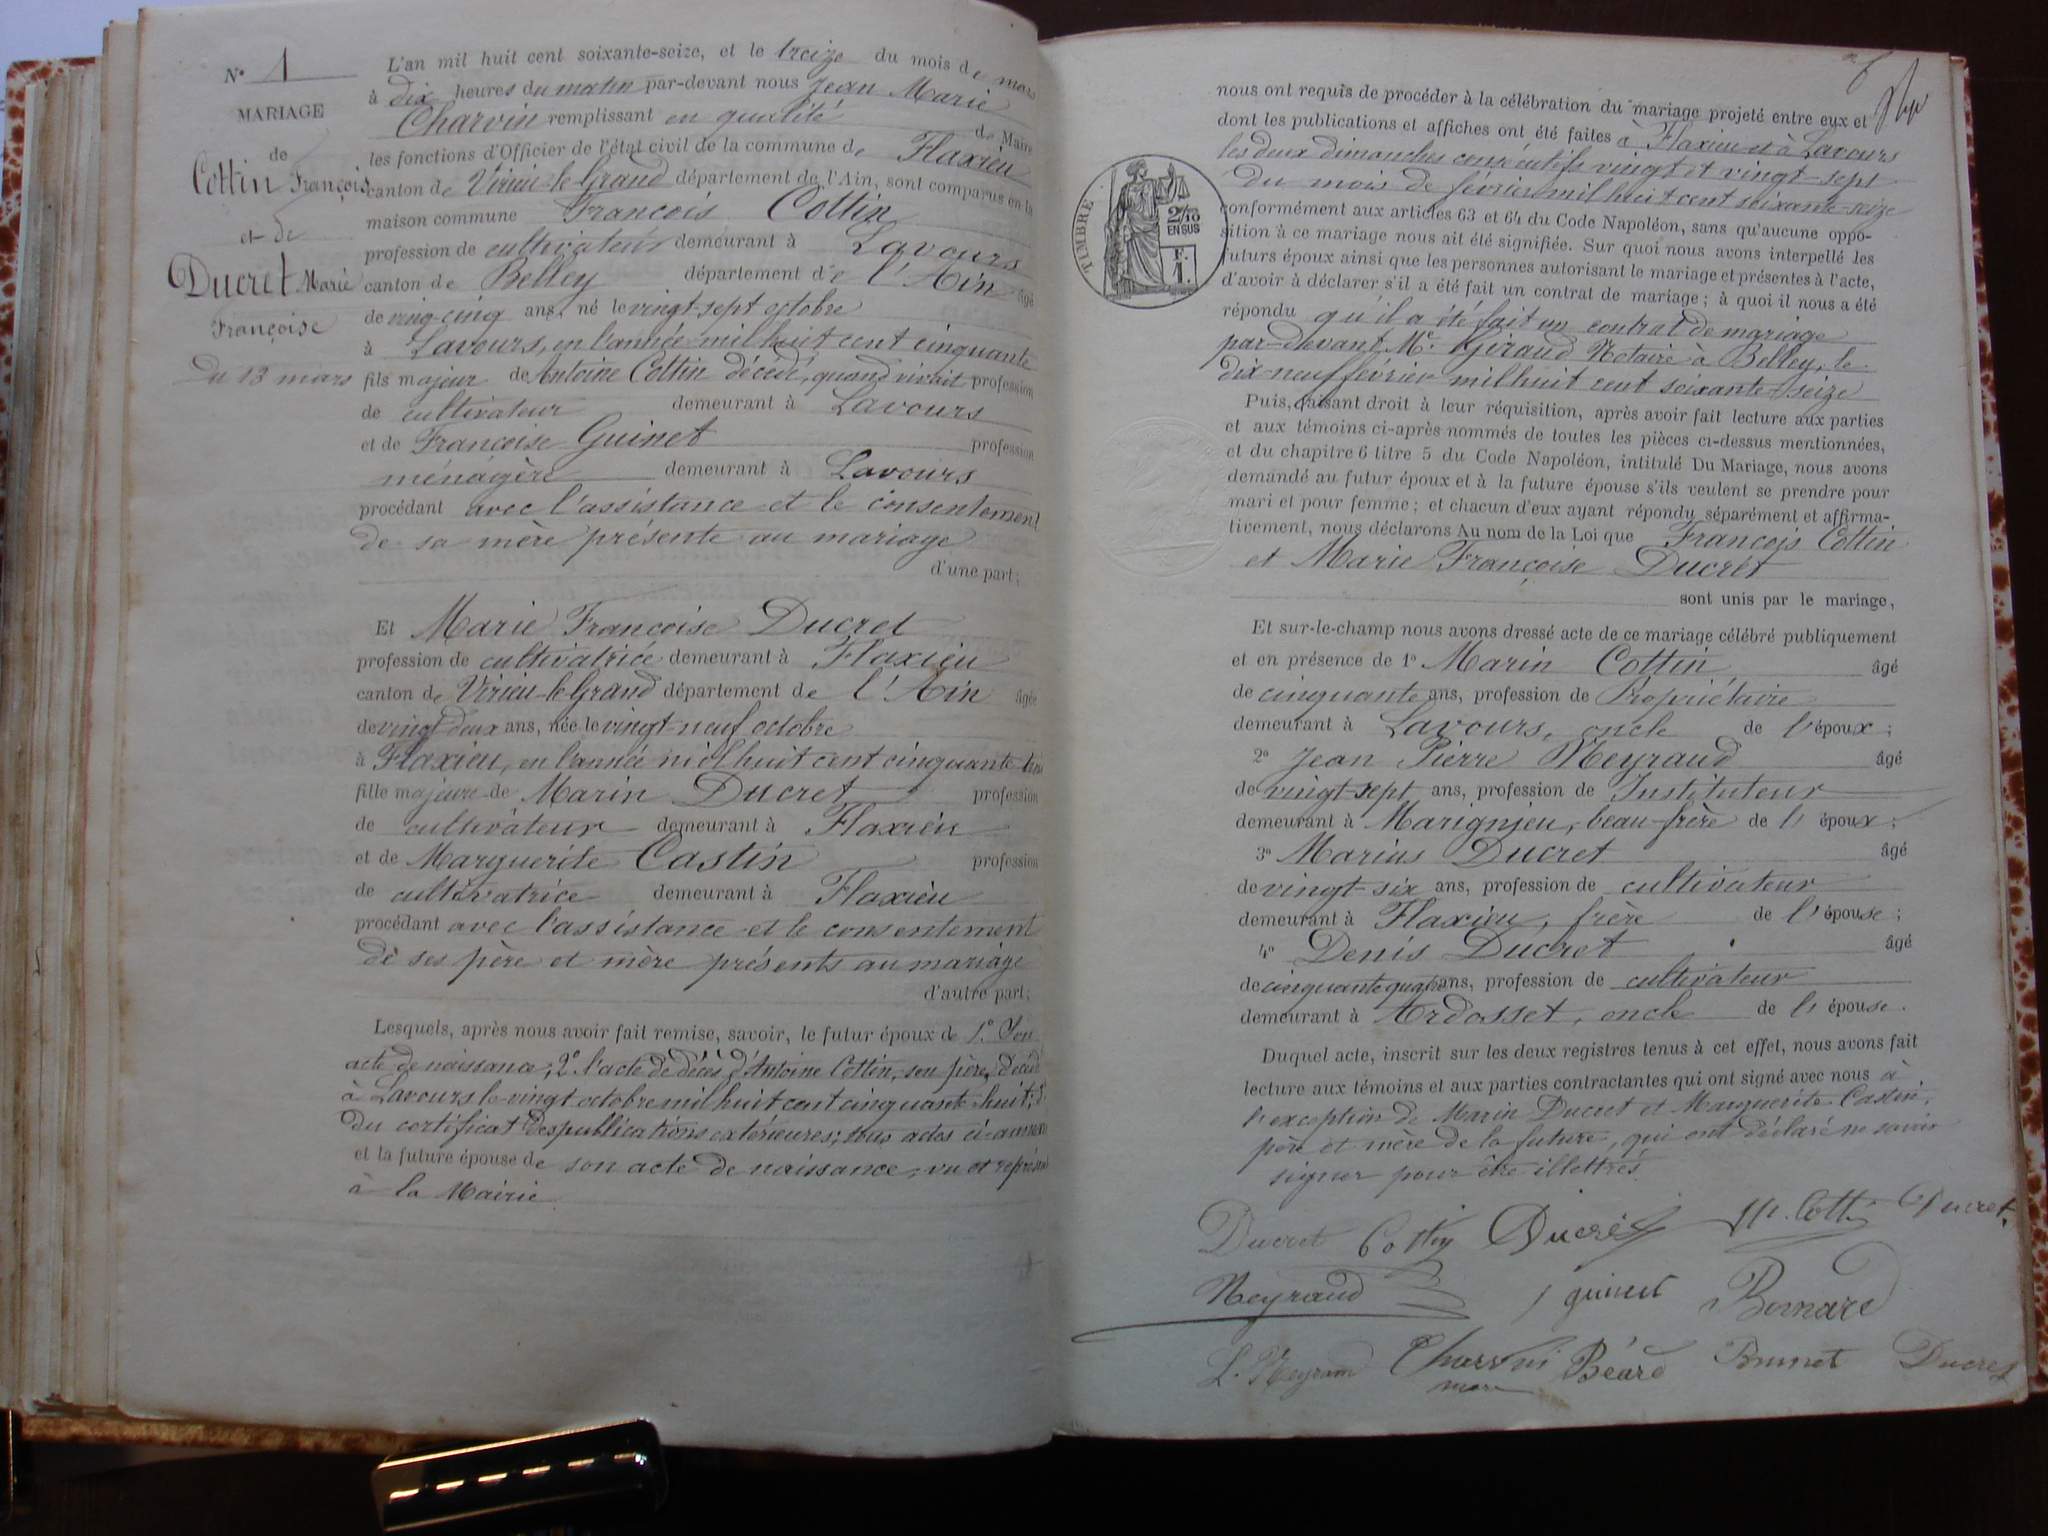 N° 1
MARIAGE
de
Cottin François
et de
Ducret Marie
Françoise
Du 13 mars
L'an mil huit cent soixante-seize, et le treize du mois de mars
à dix heures du matin par-devant nous Jean Marie
Charvin remplissant en qualité de Maire
les fonctions d'Officier de l'état civil de la commune de Flaxieu
canton de Virieu-le-Grand département de l'Ain, sont comparus en la
maison commune François Cottin
profession de cultivateur demeurant à Lavours
canton de Belley département de l'Ain âgé
de vingt-cinq ans, né le vingt-sept octobre
à Lavours, en l'année mil huit cent cinquante
fils majeur de Antoine Cottin décédé, quand vivait profession
de cultivateur demeurant à Lavours
et de Françoise Guinet profession
ménagère demeurant à Lavours
procédant avec l'assistance et le consentement
de sa mère présente au mariage
d'une part;
Et Marie Françoise Ducret
profession de cultivatrice demeurant à Flaxieu
canton de Virieu-le-Grand département de l'Ain âgée
de vingt-deux ans, née le vingt-neuf octobre
à Flaxieu, en l'année mil huit cent cinquante-trois
fille majeure de Marin Ducret profession
de cultivateur demeurant à Flaxieu
et de Marguerite Castin profession
de cultivatrice demeurant à Flaxieu
procédant avec l'assistance et le consentement
de ses père et mère présents au mariage
d'autre part;
Lesquels, après nous avoir fait remise, savoir, le futur époux de 1° Son
acte de naissance; 2° l'acte de décès d'Antoine Cottin, son père, décédé
à Lavours le vingt octobre mil huit cent cinquante-huit;
du certificat des publications extérieures; tous actes ci-annexés
et la future épouse de son acte de naissance, vu et représenté
à la Mairie
6
nous ont requis de procéder à la célébration du mariage projeté entre eux et
dont les publications et affiches ont été faites à Flaxieu et à Lavours
les deux dimanches consécutifs vingt et vingt-sept
du mois de février mil huit cent soixante-seize
TIMBRE
2/10
EN SUS
F.
1.
conformément aux articles 63 et 64 du Code Napoléon, sans qu'aucune oppo-
sition à ce mariage nous ait été signifiée. Sur quoi nous avons interpellé les
futurs époux ainsi que les personnes autorisant le mariage et présentes à l'acte,
d'avoir à déclarer s'il a été fait un contrat de mariage; à quoi il nous a été
répondu qu'il a été fait un contrat de mariage
par-devant Me. Giraud Notaire à Belley, le
dix-neuf février mil huit cent soixante-seize
Puis, faisant droit à leur réquisition, après avoir fait lecture aux parties
et aux témoins ci-après nommés de toutes les pièces ci-dessus mentionnées,
et du chapitre 6 titre 5 du Code Napoléon, intitulé Du Mariage, nous avons
demandé au futur époux et à la future épouse s'ils veulent se prendre pour
mari et pour femme; et chacun d'eux ayant répondu séparément et affirma-
tivement, nous déclarons Au nom de la Loi que François Cottin
et Marie Françoise Ducret
sont unis par le mariage,
Et sur-le-champ nous avons dressé acte de ce mariage célébré publiquement
et en présence de 1° Marin Cottin âgé
de cinquante ans, profession de Propriétaire
demeurant à Lavours, oncle de l'époux;
2° Jean Pierre Neyraud âgé
de vingt-sept ans, profession de Instituteur
demeurant à Marignieu, beau-frère de l'époux;
3° Marius Ducret âgé
de vingt-six ans, profession de cultivateur
demeurant à Flaxieu, frère de l'épouse;
4° Denis Ducret âgé
de cinquante quatre ans, profession de cultivateur
demeurant à Ardosset, oncle de l'épouse.
Duquel acte, inscrit sur les deux registres tenus à cet effet, nous avons fait
lecture aux témoins et aux parties contractantes qui ont signé avec nous à
l'exception de Marin Ducret et Marguerite Castin,
père et mère de la future, qui ont déclaré ne savoir
signer pour être illettrés.
Ducret Cottin Ducret M. Cottin Ducret
Neyraud guinet Bernard
L. Neyraud Charvin Béard Brunet Ducret
maire